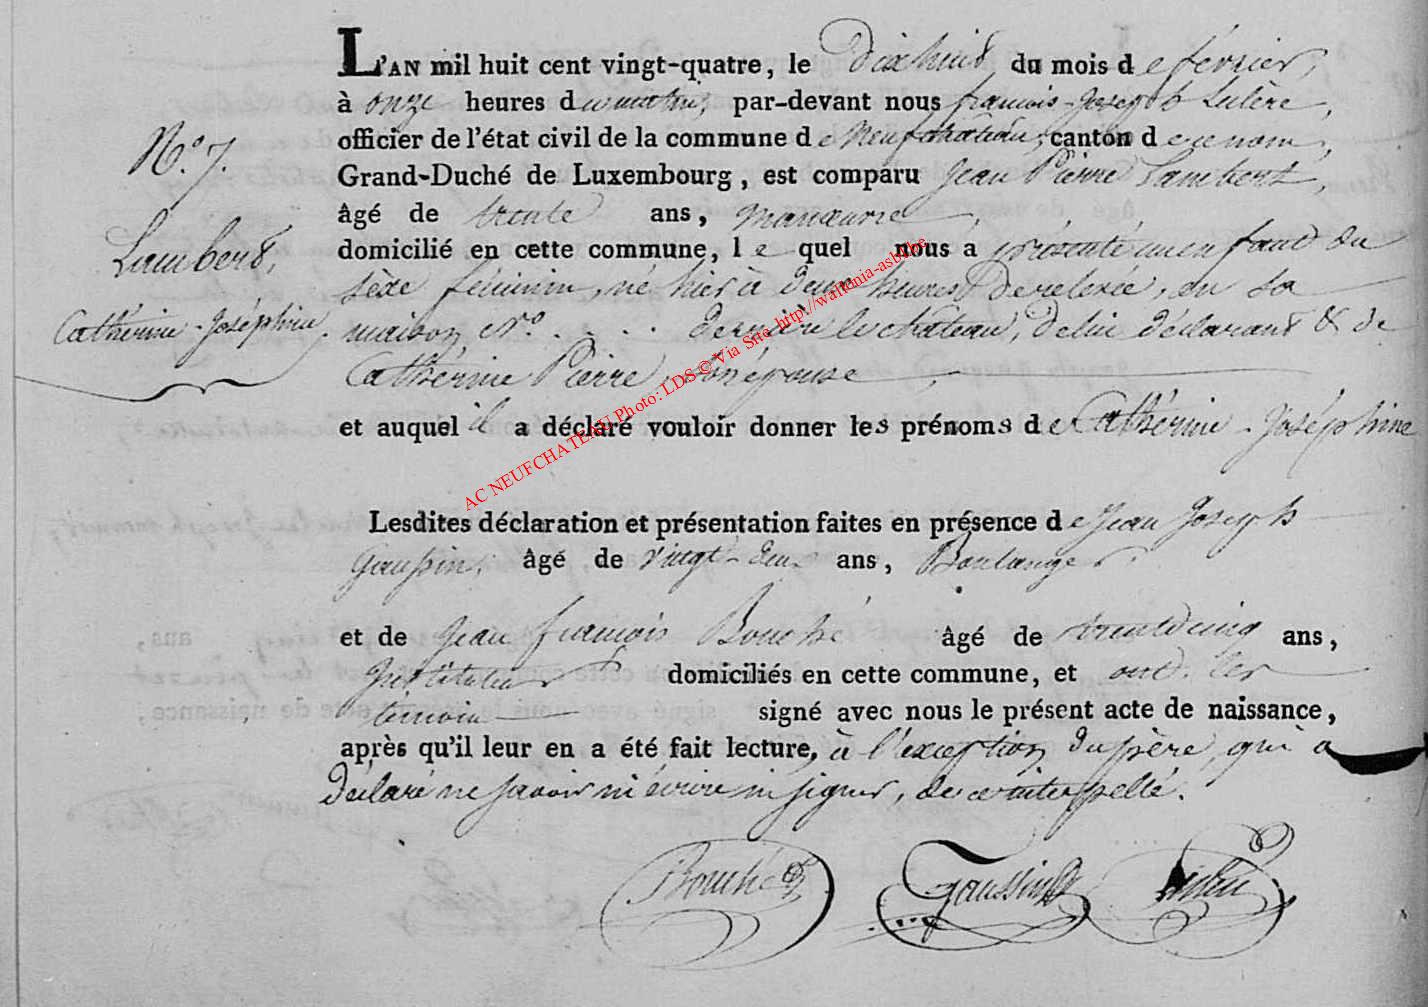 L'AN mil huit cent vingt-quatre, le Dix huit du mois de février,
à onze heures du matin, par-devant nous françois-Joseph
officier de l'état civil de la commune de Neufchâteau, canton de ce nom,
Grand-Duché de Luxembourg, est comparu Jean Pierre Lambert,
âgé de trente ans, manœuvre
domicilié en cette commune, lequel nous a présenté un enfant du
sèxe féminin, né hier à deux heures de relevée, en sa
maison No. . . . derrière le château, de lui déclarant & de
Cathérine Pierre, son épouse
et auquel il a déclaré vouloir donner les prénoms de Cathérine-Joséphine
Lesdites déclaration et présentation faites en présence de Jean Joseph
Gaussin, âgé de vingt-deux ans, Boulanger
et de Jean françois Bouché âgé de trente cinq ans,
Instituteur domiciliés en cette commune, et ont les
témoins signé avec nous le présent acte de naissance,
après qu'il leur en a été fait lecture, à l'exception du père, qui a
déclaré ne savoir ni écrire ni signer, de ce interpellé.
N.o 7.
Lambert,
Cathérine-Joséphine
Bouché Gaussin
AC NEUFCHATEAU Photo: LDS © Via Site http://wallonia-asbl.be